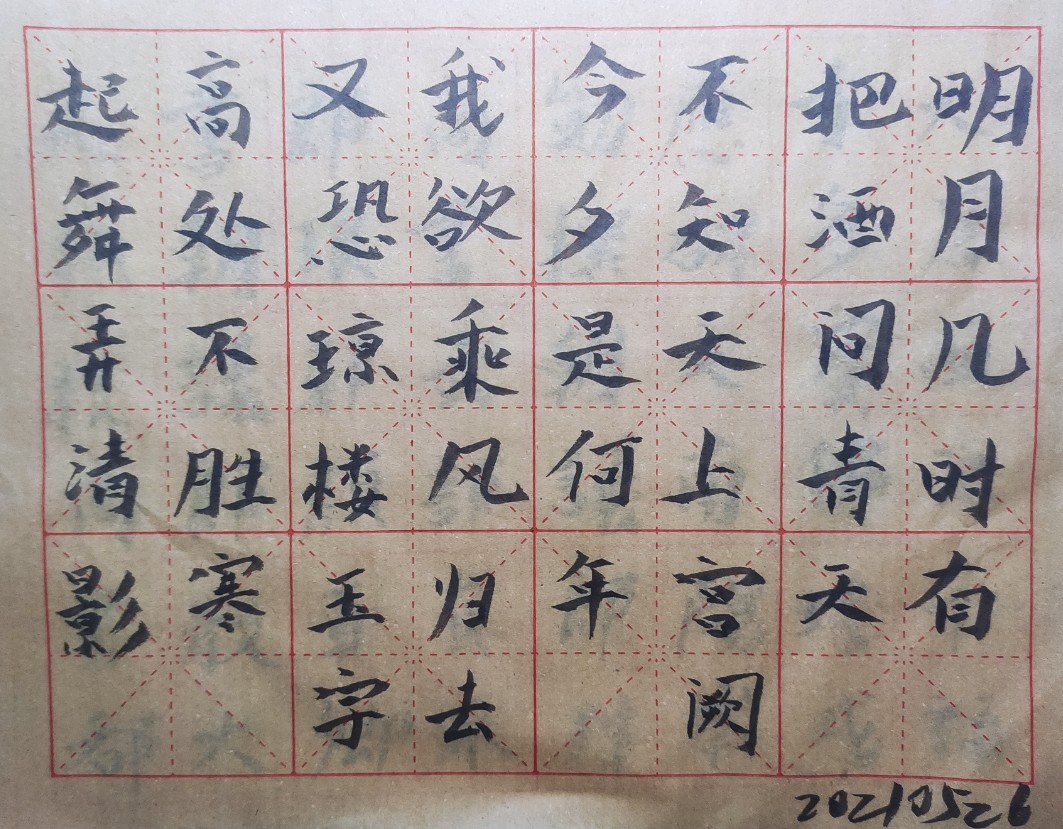 明月几时有
把酒问青天
不知天上宫阙
今夕是何年
我欲乘风归去
又恐琼楼玉宇
高处不胜寒
起舞弄清影
20210526